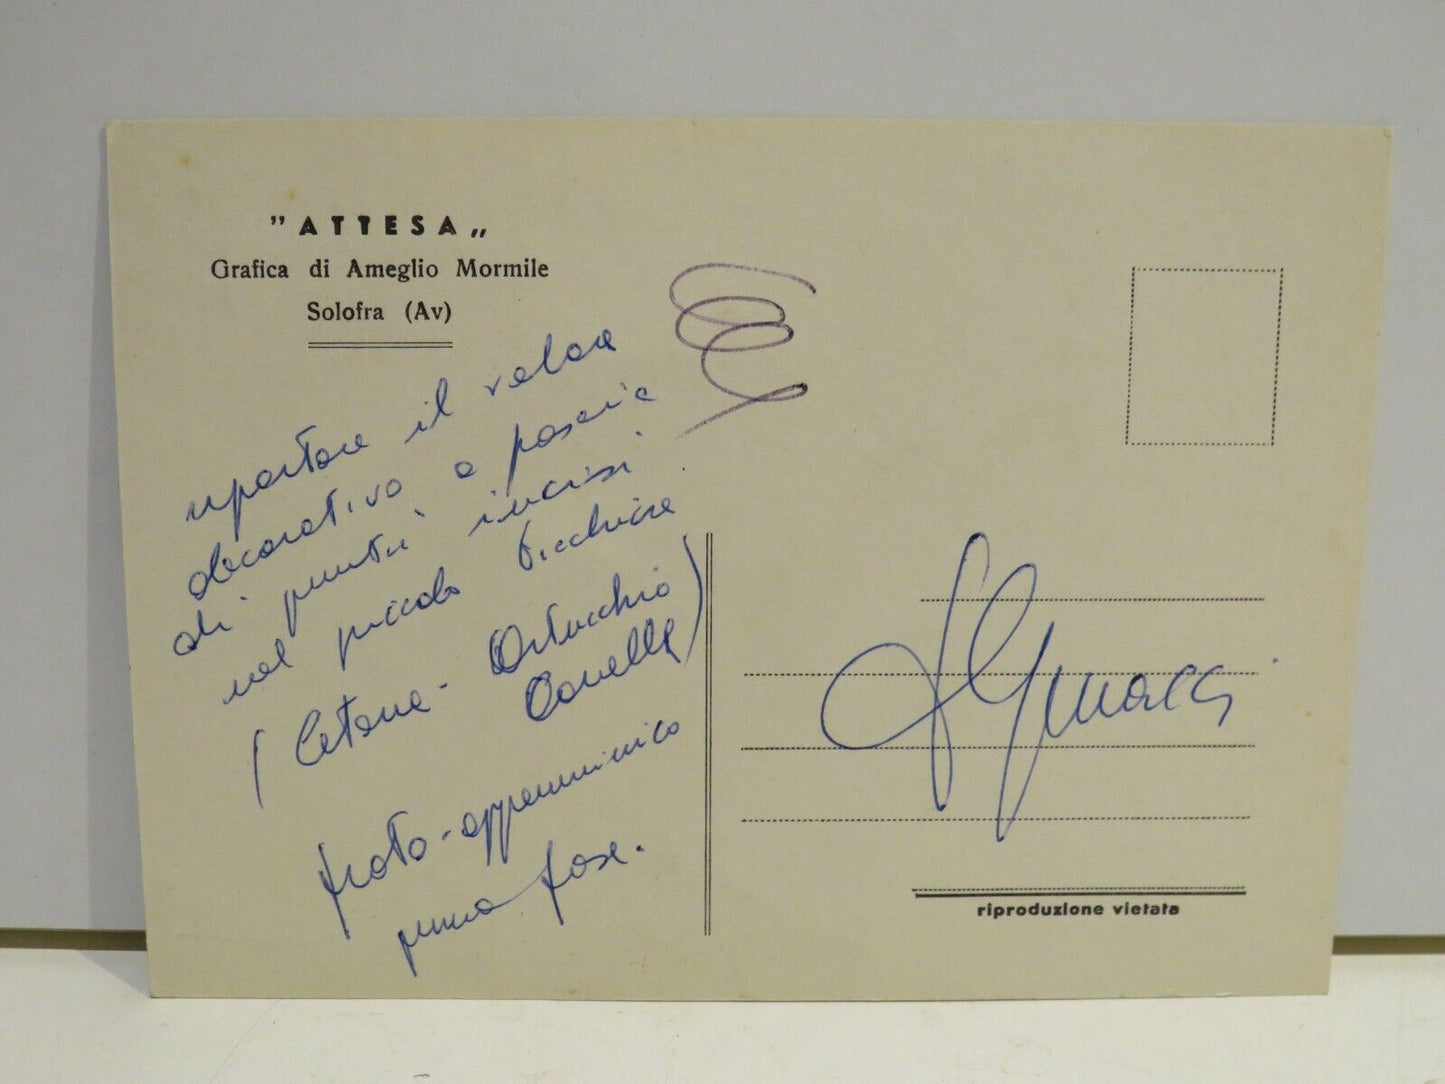 "ATTESA„
Grafica di Ameglio Mormile
Solofra (Av)
riportare il
decorativo a fascie
di punti incisi
nel piccolo bicchiere
( Cetona - Ortucchio
Conelle )
proto-appenninico
prima fase.
riproduzione vietata